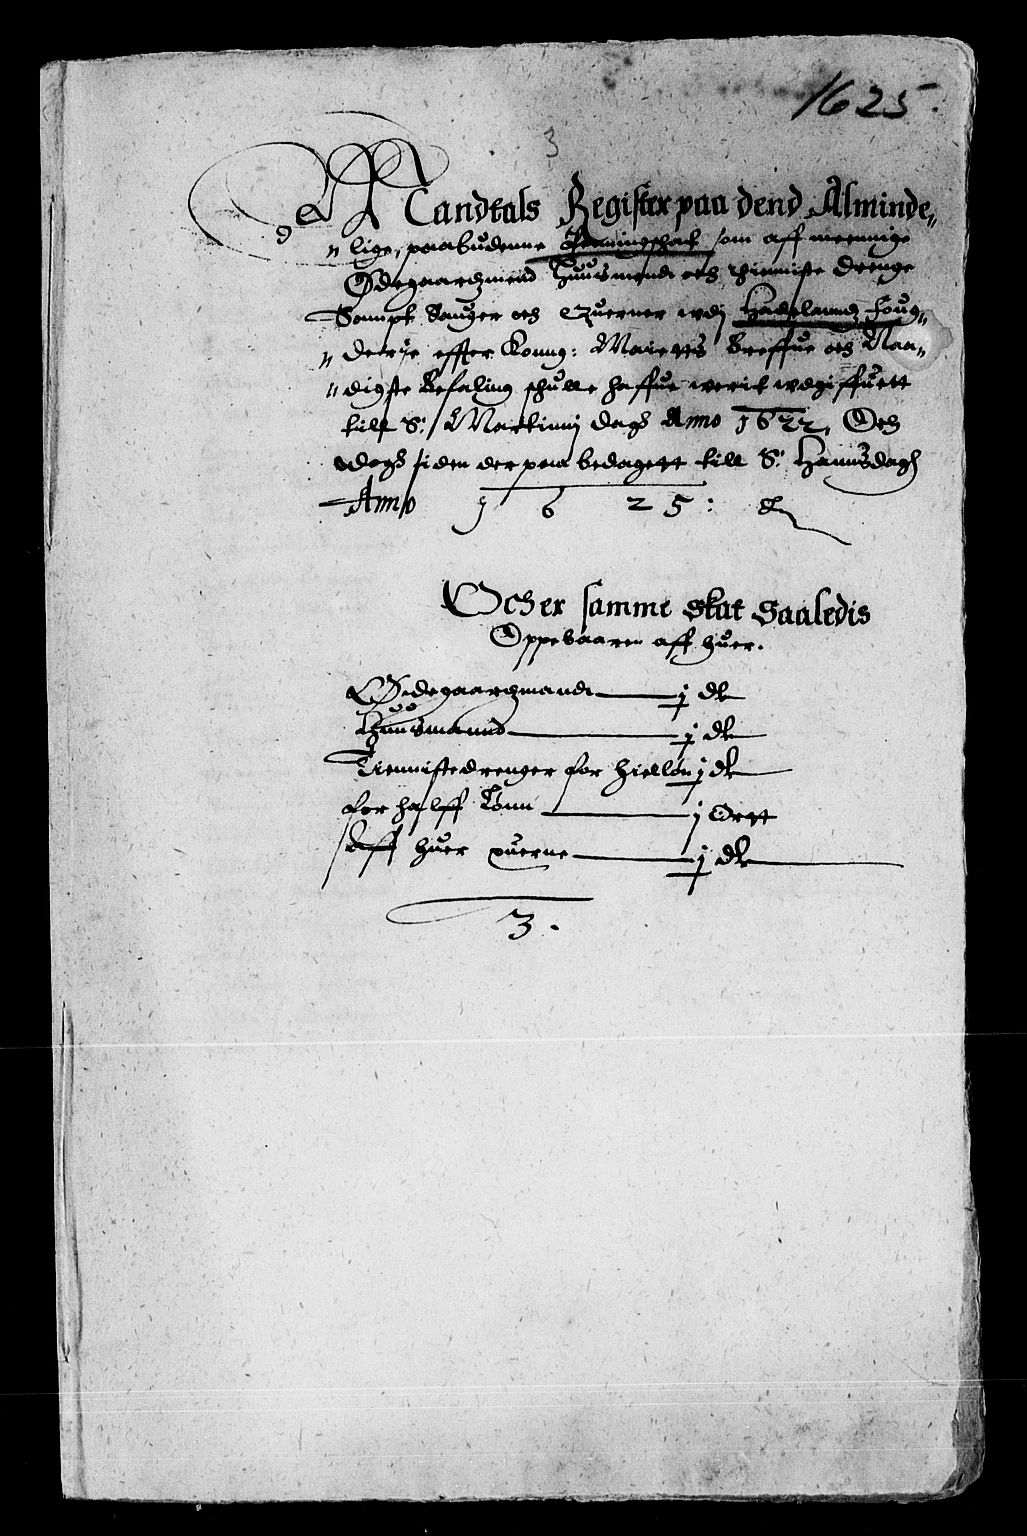 1625.
3
Mandtals Register paa dend Alminde„
„lige, paabudenne Penningschat som aff meenige
Ødegaardzmend Huusmend och thieniste Drenge
Sampt Sauger och Querner wdj Hadelanndz foug„
„derije effter Konng: Maietts Breffue och Naa„
„digste Befaling schulle haffue werit wdgiffuett
till S: Martinnj dags Anno 1622, Och
dogs siden der paa bedagett till S: Hannsdagh
Anno 1625:
Och er samme Skat Saaledis
Oppebaaren aff huer.
Ødegaardzmand j dr
Huusmannd j dr
Tiennistedrenger for hiellön j dr
for halff Lönn j Ortt
Aff huer querne j dr
3.